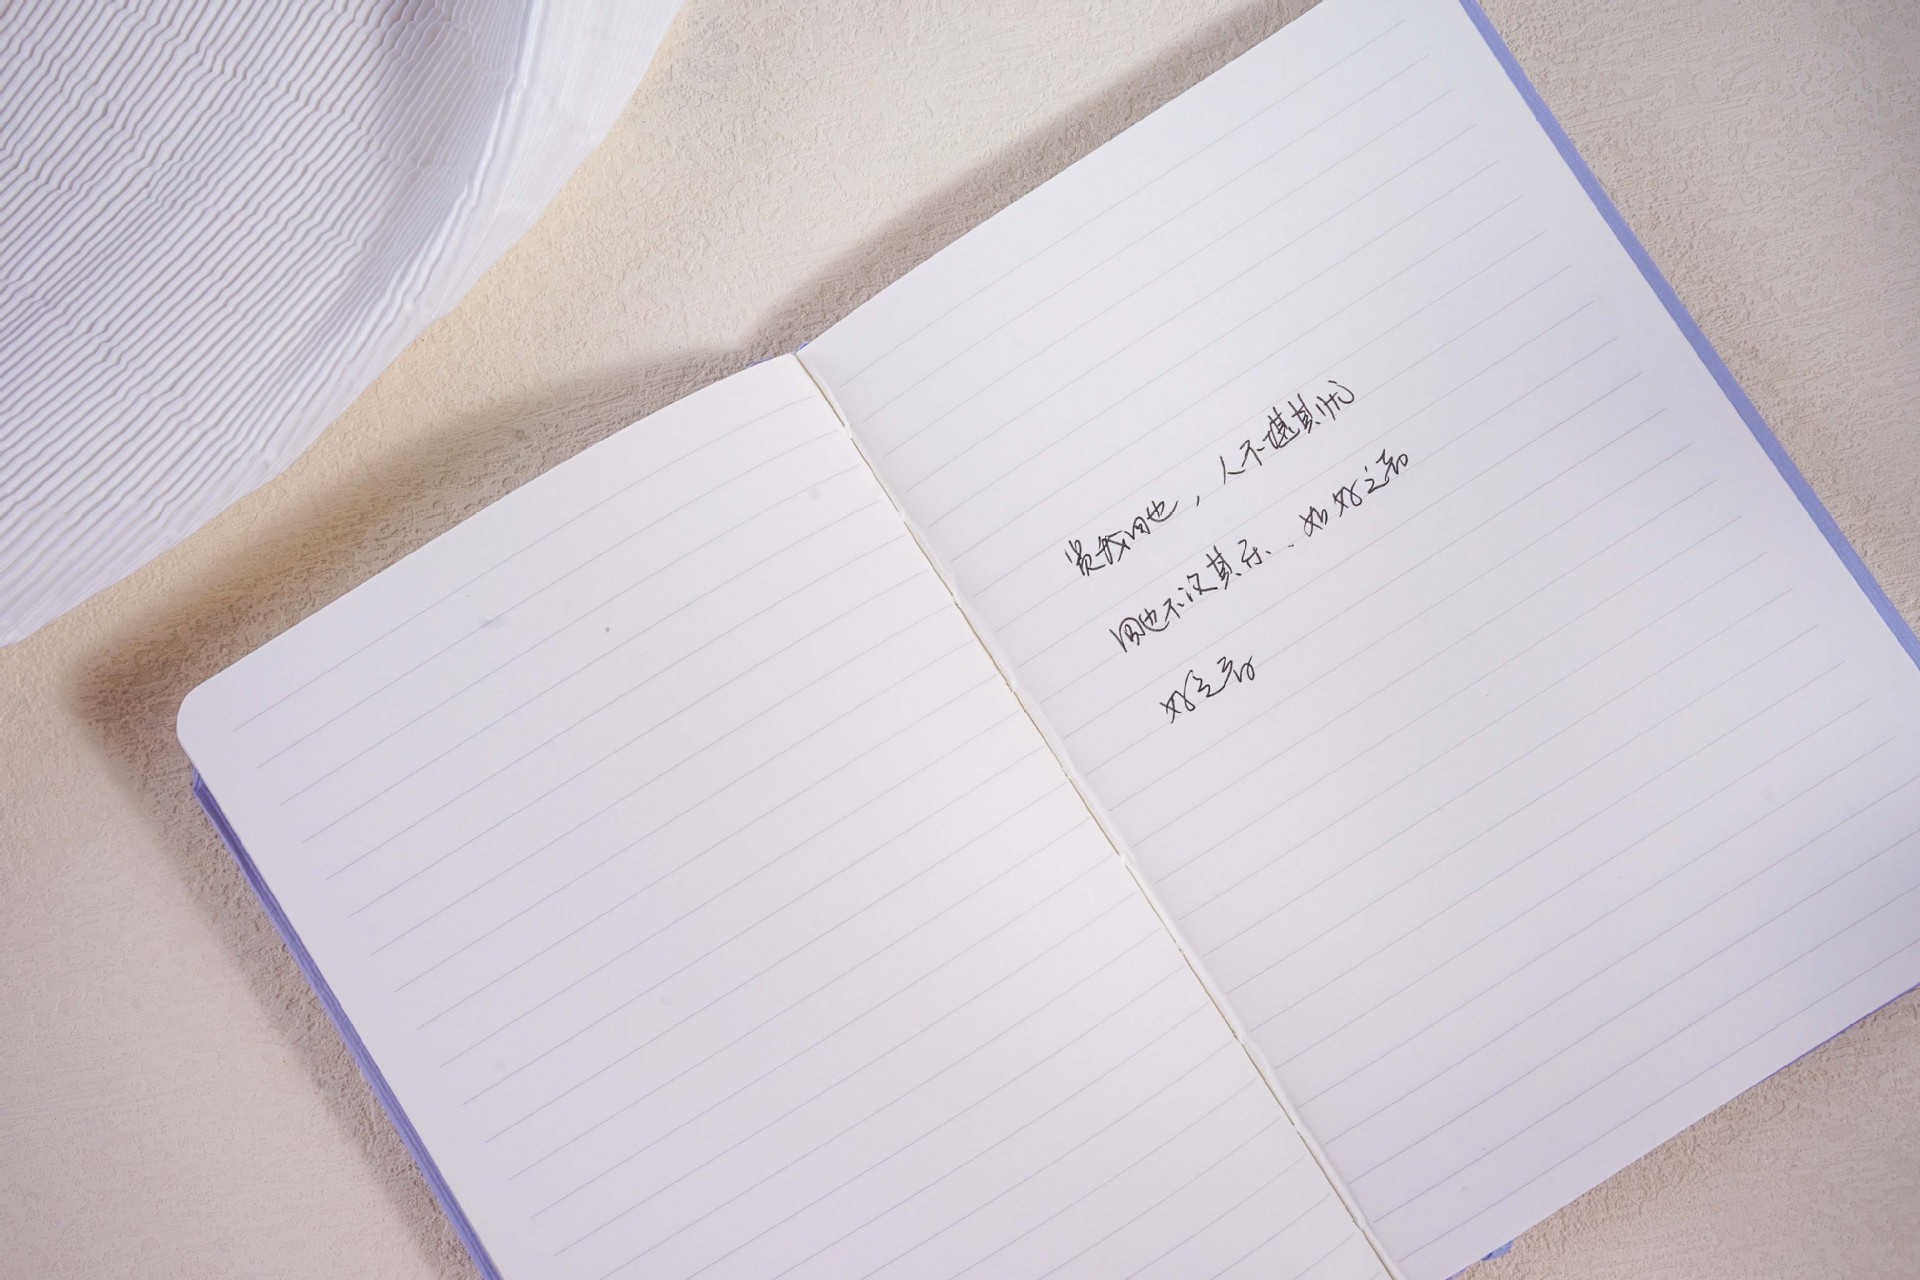 贤哉回也，人不堪其忧
回也不没其乐..如好之者
好之者